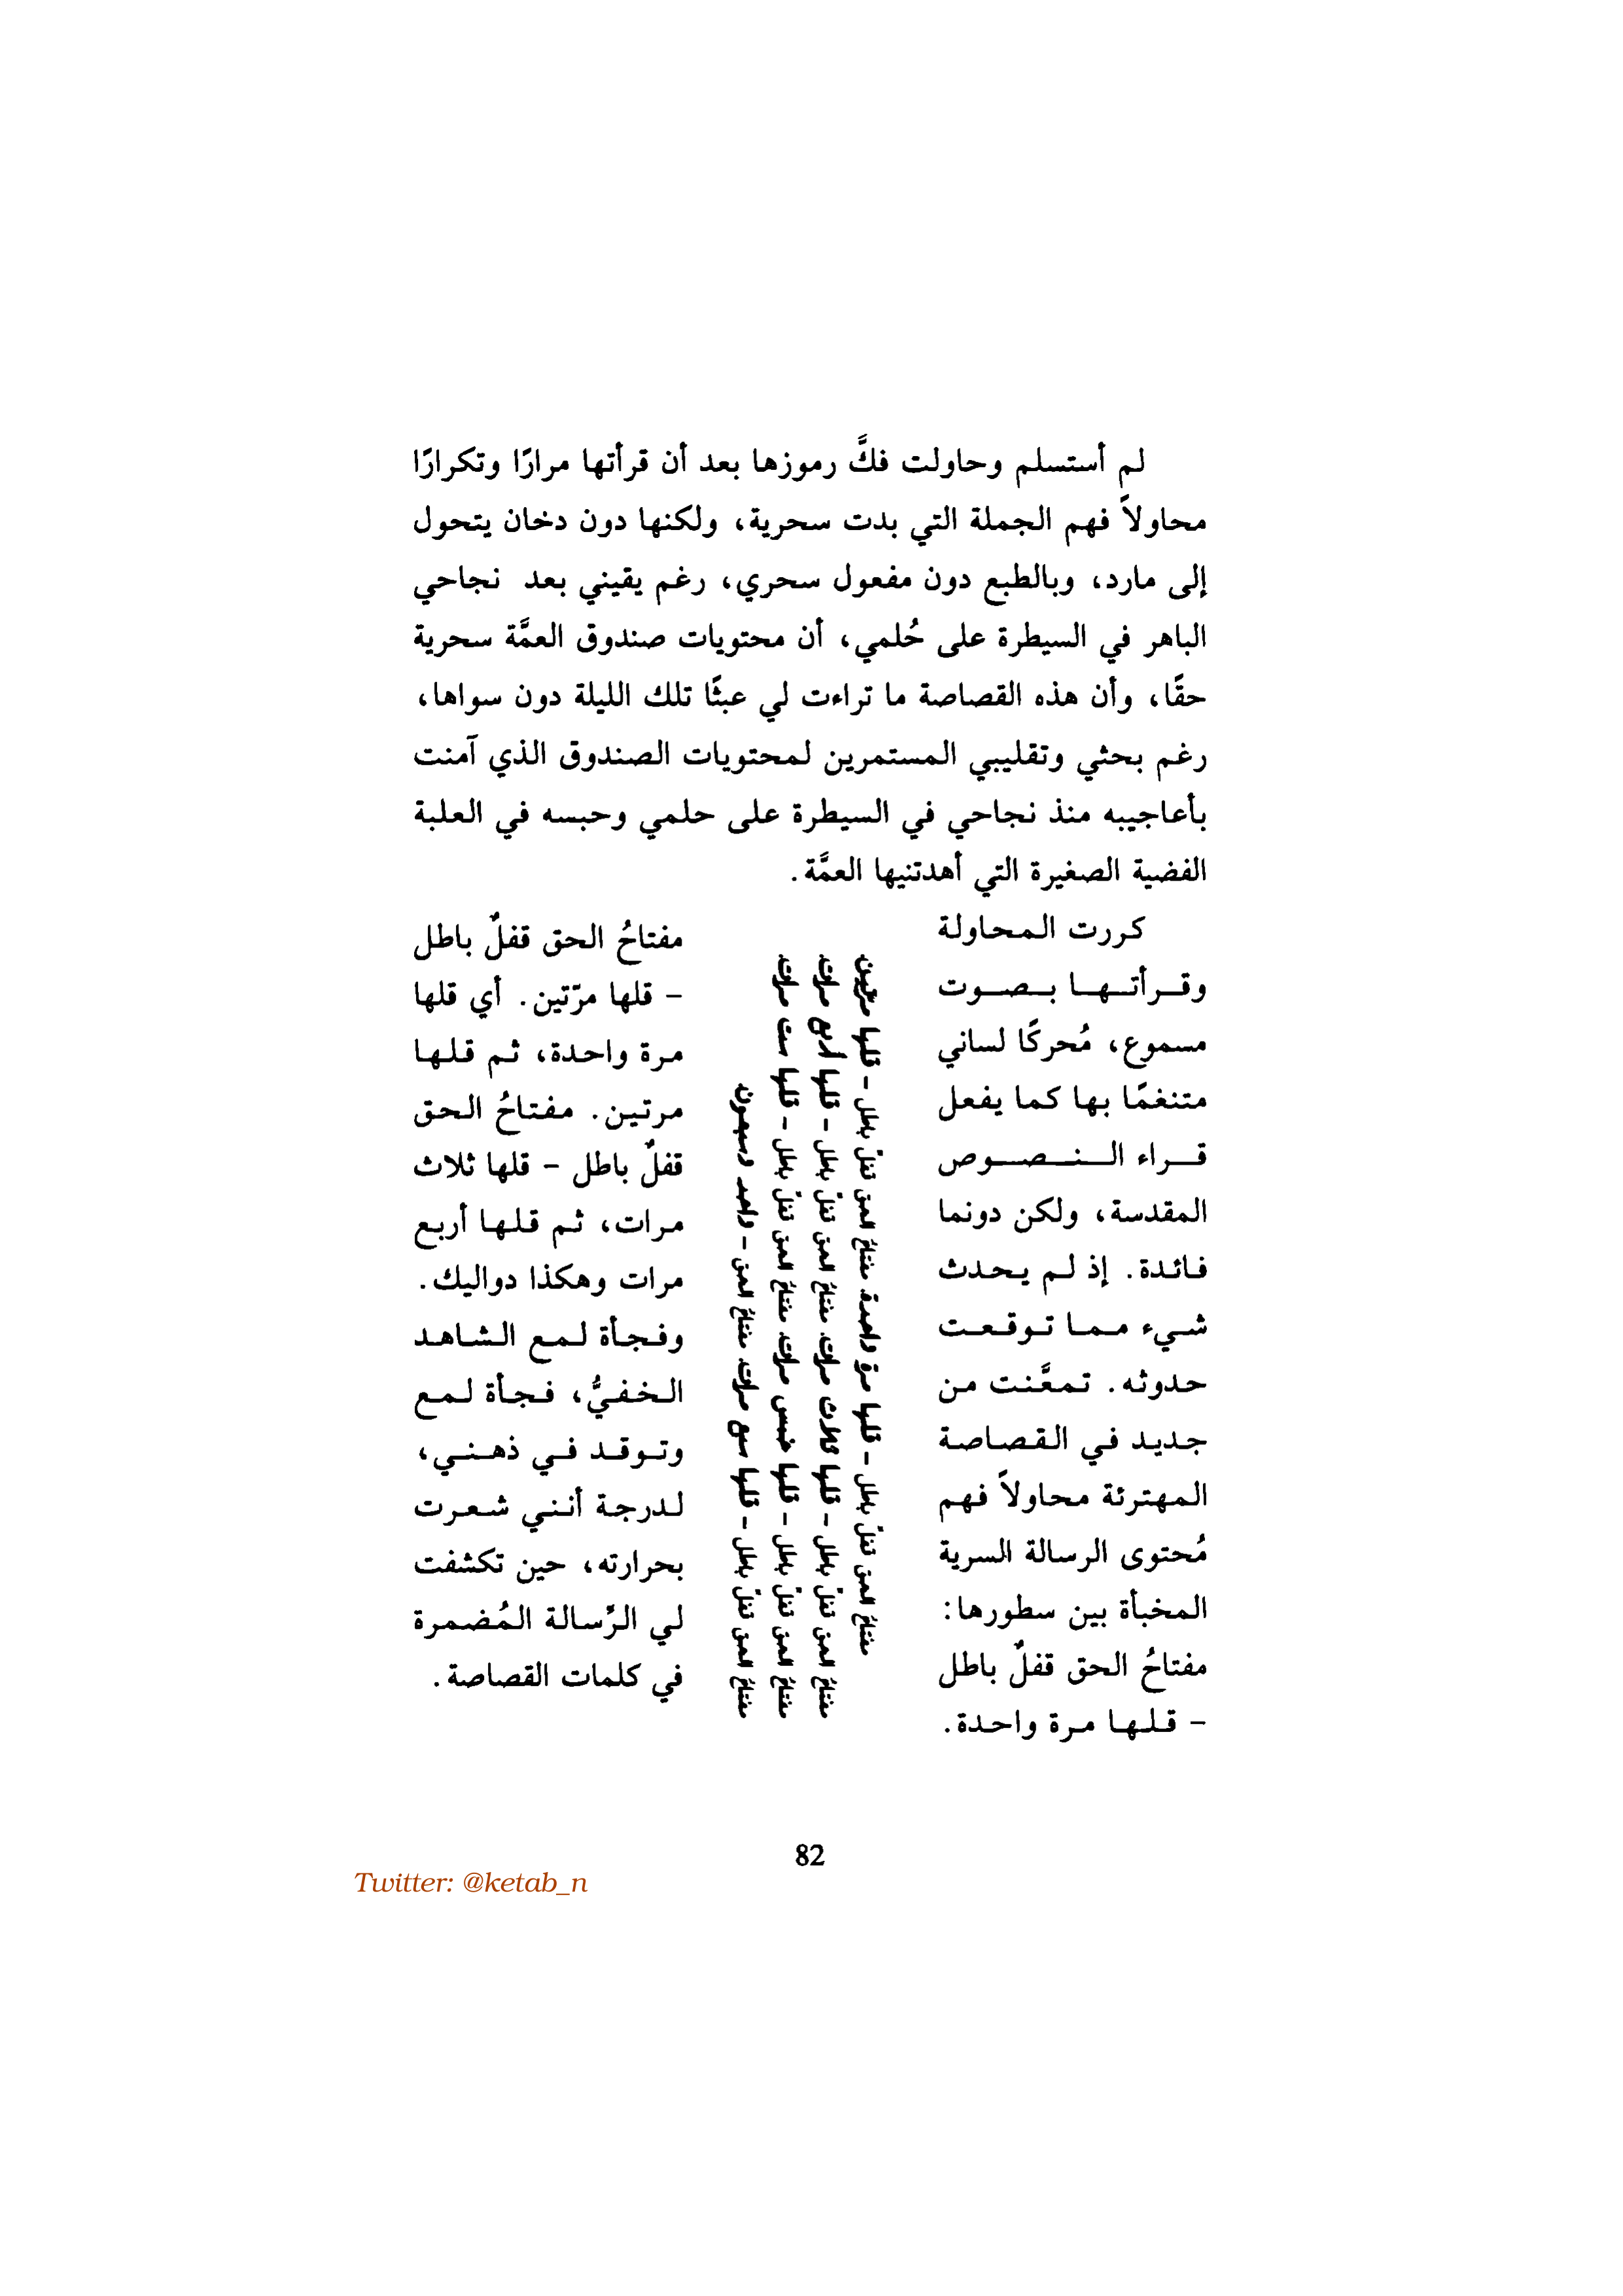 لم أستسلم وحاولت فكَّ رموزها بعد أن قرأتها مرارًا وتكرارًا
محاولاً فهم الجملة التي بدت سحرية، ولكنها دون دخان يتحول
إلى مارد، وبالطبع دون مفعول سحري، رغم يقيني بعد نجاحي
الباهر في السيطرة على حُلمي، أن محتويات صندوق العمَّة سحرية
حقًا، وأن هذه القصاصة ما تراءت لي عبثًا تلك الليلة دون سواها،
رغم بحثي وتقليبي المستمرين لمحتويات الصندوق الذي آمنت
بأعاجيبه منذ نجاحي في السيطرة على حلمي وحبسه في العلبة
الفضية الصغيرة التي أهدتنيها العمَّة.
كررت المحاولة
وقرأتها بصوت
مسموع، مُحركًا لساني
متنغمًا بها كما يفعل
قراء النصوص
المقدسة، ولكن دونما
فائدة. إذ لم يحدث
شيء مما توقعت
حدوثه. تمعَّنت من
جديد في القصاصة
المهترئة محاولاً فهم
مُحتوى الرسالة السرية
المخبأة بين سطورها:
مفتاحُ الحق قفلٌ باطل
- قلها مرة واحدة.
مفتاحُ الحق قفلٌ باطل - قلها مرة واحدة. مفتاحُ الحق قفلٌ باطل - قلها مرّتين
مفتاحُ الحق قفلٌ باطل - قلها ثلاث مرات. مفتاحُ الحق قفلٌ باطل - قلها أربع مرات.
مفتاحُ الحق قفلٌ باطل - قلها خمس مرات. مفتاحُ الحق قفلٌ باطل - قلها ست مرات.
مفتاحُ الحق قفلٌ باطل - قلها سبع مرات. مفتاحُ الحق - واحد وسبعون.
مفتاحُ الحق قفلٌ باطل
- قلها مرّتين. أي قلها
مرة واحدة، ثم قلها
مرتين. مفتاحُ الحق
قفلٌ باطل - قلها ثلاث
مرات، ثم قلها أربع
مرات وهكذا دواليك.
وفجأة لمع الشاهد
الخفيُّ، فجأة لمع
وتوقد في ذهني،
لدرجة أنني شعرت
بحرارته، حين تكشفت
لي الرِّسالة المُضمرة
في كلمات القصاصة.
82
Twitter: @ketab_n